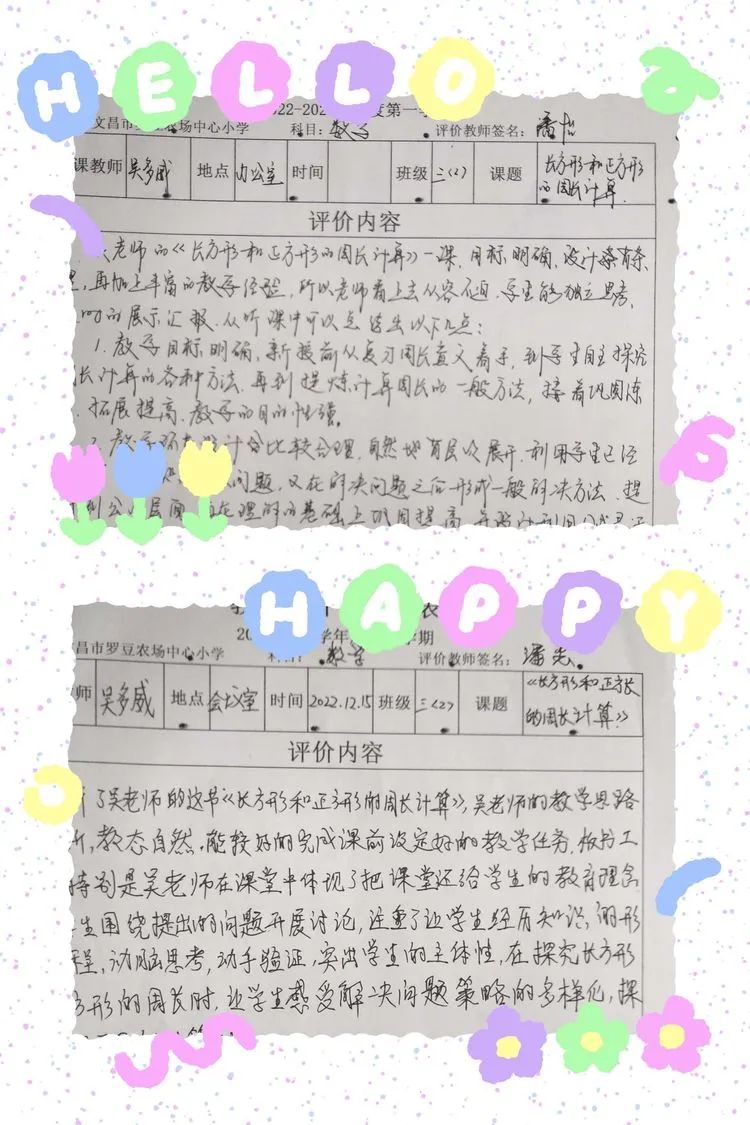 HELLO
2022-202 度第一学
文昌市罗豆农场中心小学 科目：数学 评价教师签名：潘
课教师 吴多威 地点 办公室 时间 班级 三(2) 课题 长方形和正方形的周长计算
评价内容
吴老师的《长方形和正方形的周长计算》一课，目标明确，设计条有条
，再加上丰富的教学经验，所以老师看上去从容不迫，学生能独立思考，
的展示汇报。从听课中可以总结出以下几点：
1. 教学目标明确，新授前从复习周长意义着手，到学生自主探究
长计算的各种方法，再到提炼计算周长的一般方法，接着巩固练
，拓展提高，教学的目的性强。
2. 教学环 设计合比较合理，自然地有层次展开，利用学生已经
问题，又在解决问题之后形成一般解决方法，提
到公 层面 在理解的基础上巩固提高
HAPPY
20 学年 学期
昌市罗豆农场中心小学 科目：数学 评价教师签名：潘
师 吴多威 地点 会议室 时间 2022.12.15 班级 三<2> 课题 《长方形和正方长的周长计算》
评价内容
了吴老师的这节《长方形和正方形的周长计算》，吴老师的教学思路
，教态自然，能较好的完成课前设定好的教学任务，板书工
特别是吴老师在课堂中体现了把课堂还给学生的教育理念
生围绕提出的问题开展讨论，注重了让学生经历知识的形
程，动脑思考，动手验证，突出学生的主体性，在探究长方形
方形的周长时，让学生感受解决问题策略的多样化，探